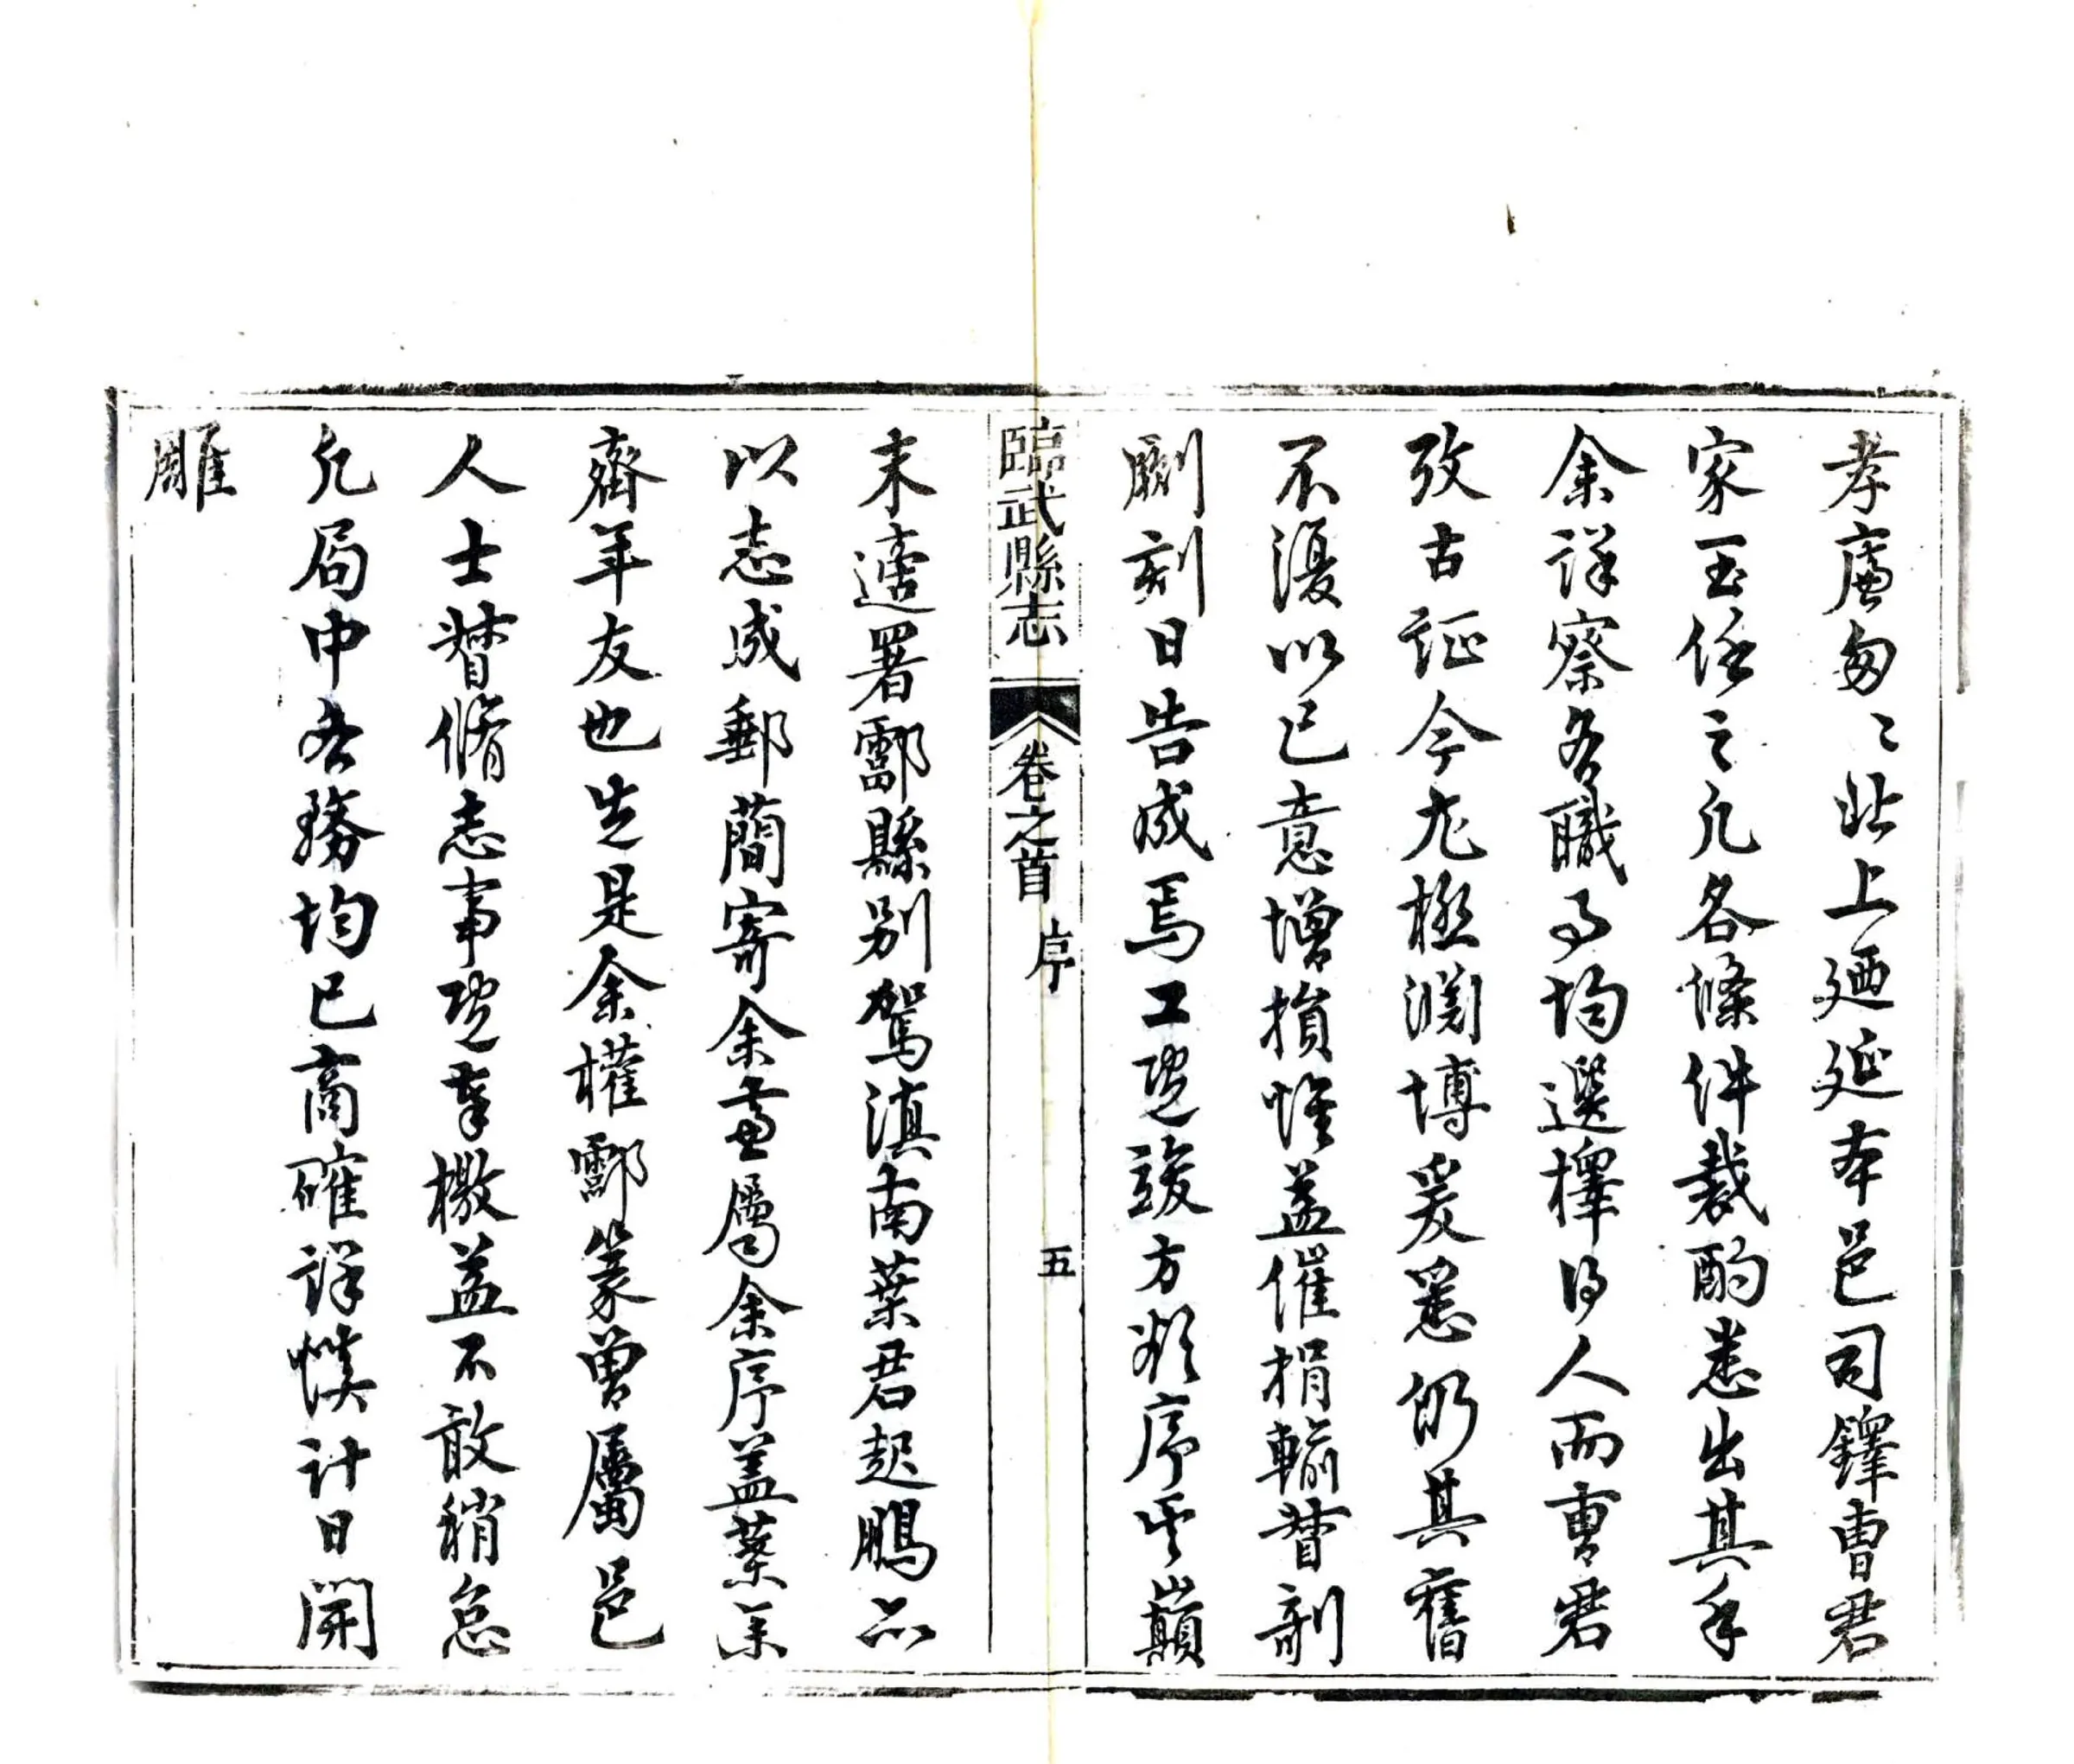 孝廉匆〻北上廼延本邑司鐸曹君
家玉任之凡各條件裁酌悉出其手
余詳察各職事均選擇得人而曹君
攷古証今尤極淵博爰悉仍其舊
不復以已意增損惟益催捐輸督剞
劂刻日告成焉工既竣方欲序其巔
臨武縣志 卷之首 序 五
末適署酃縣別駕滇南葉君起鵬亦
以志成郵蕳寄余並屬余序蓋葉余
齊年友也先是余權酃篆曾屬邑
人士督脩志事既奉檄益不敢稍怠
凡局中各務均已商確詳慎計日開
雕